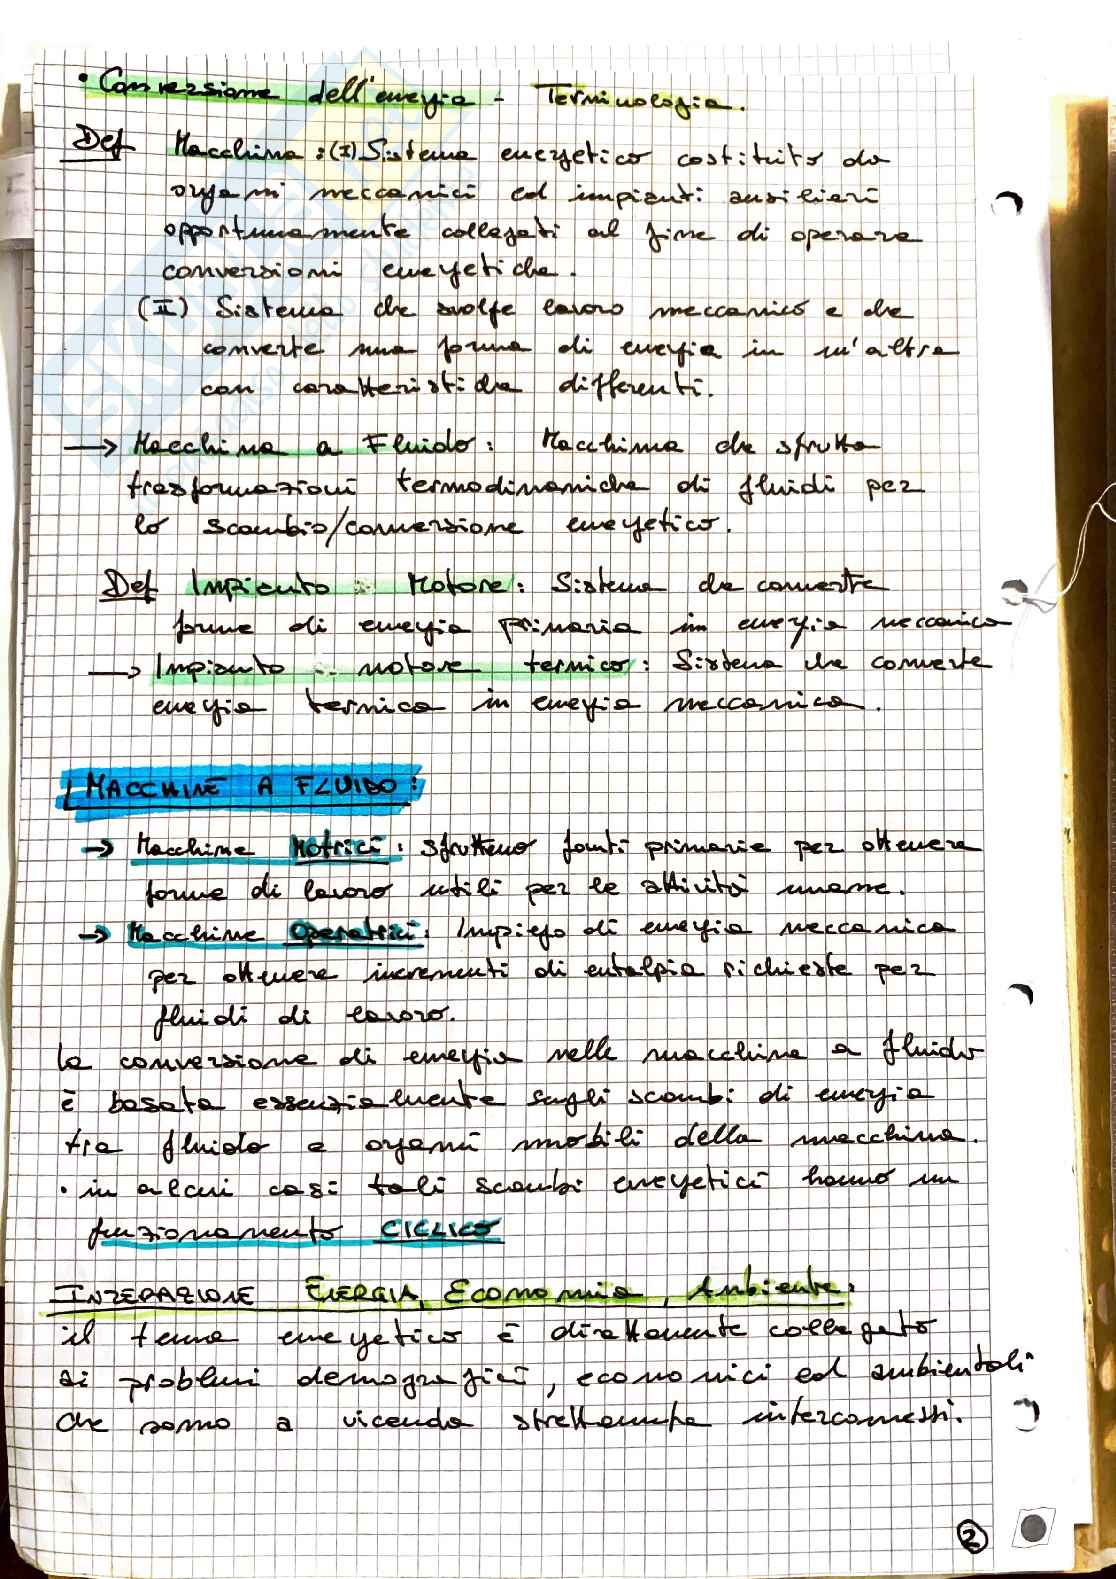 • Conversione dell'energia - Terminologia.
Def Macchina : (I) Sistema energetico costituito da
organi meccanici ed impianti ausilieri
opportunamente collegati al fine di operare
conversioni energetiche.
(II) Sistema che svolge lavoro meccanico e che
converte una forma di energia in un'altra
con caratteristiche differenti.
→ Macchina a Fluido: Macchina che sfrutta
trasformazioni termodinamiche di fluidi per
lo scambio/conversione energetico.
Def Impianto Motore: Sistema che converte
forme di energia primaria in energia meccanica
→ Impianto motore termico: Sistema che converte
energia termica in energia meccanica.
MACCHINE A FLUIDO:
→ Macchine Motrici: sfruttano fonti primarie per ottenere
forme di lavoro utili per le attività umane.
→ Macchine Operatrici: Impiego di energia meccanica
per ottenere incrementi di entalpia richieste per
fluidi di lavoro.
la conversione di energia nelle macchine a fluido
è basata essenzialmente sugli scambi di energia
tra fluido e organi mobili della macchina.
• in alcuni casi tali scambi energetici hanno un
funzionamento CICLICO
INTERAZIONE ENERGIA, Economia, Ambiente:
il tema energetico è direttamente collegato
ai problemi demografici, economici ed ambientali
che sono a vicenda strettamente interconnessi.
2